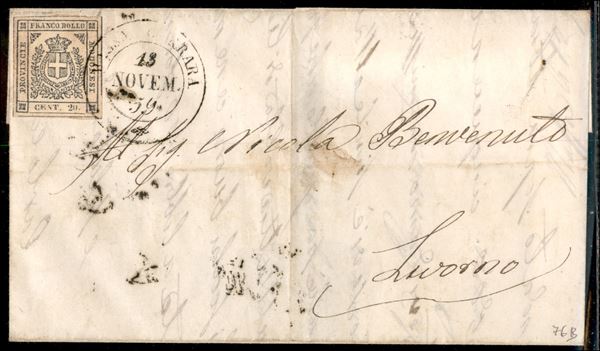 FRANCO BOLLO
PROVINCIE
MODENESI
CENT. 20.
CARRARA
13
NOVEM.
59
Al Sig. Nicola Benvenuto
Livorno
76B